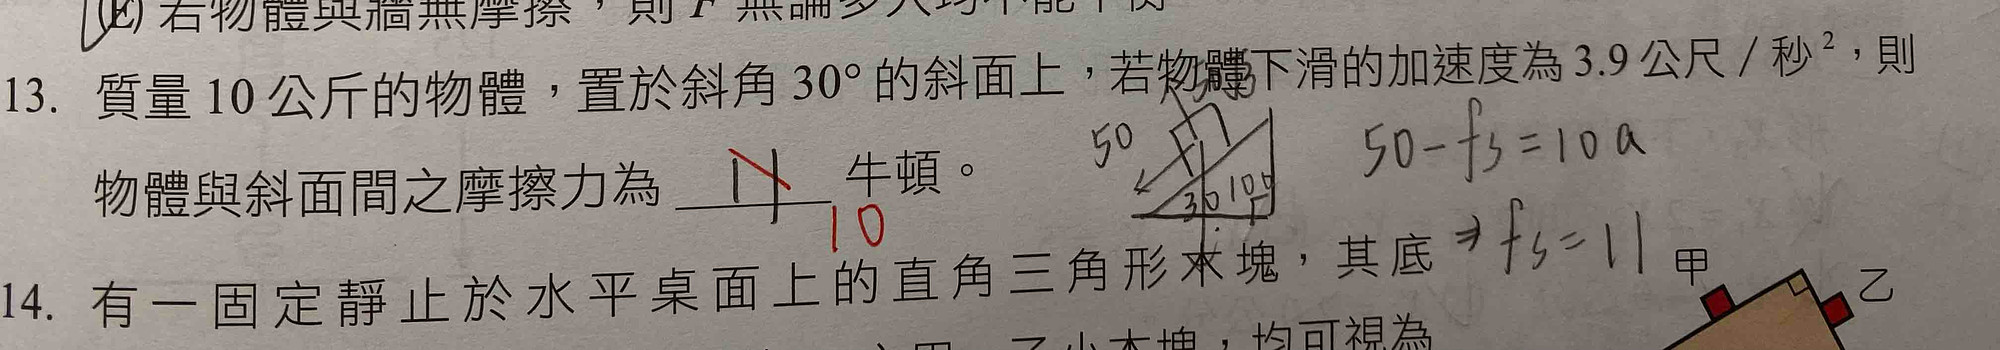 (E) 若物體與牆無摩擦，則 F 無論多大均不能平衡
13. 質量 10 公斤的物體，置於斜角 30° 的斜面上，若物體下滑的加速度為 3.9 公尺／秒²，則
50
30
100
50-fs=10a
物體與斜面間之摩擦力為 11 牛頓。
10
⇒ fs=11
14. 有一固定靜止於水平桌面上的直角三角形木塊，其底
甲
乙
乙小木塊，均可視為